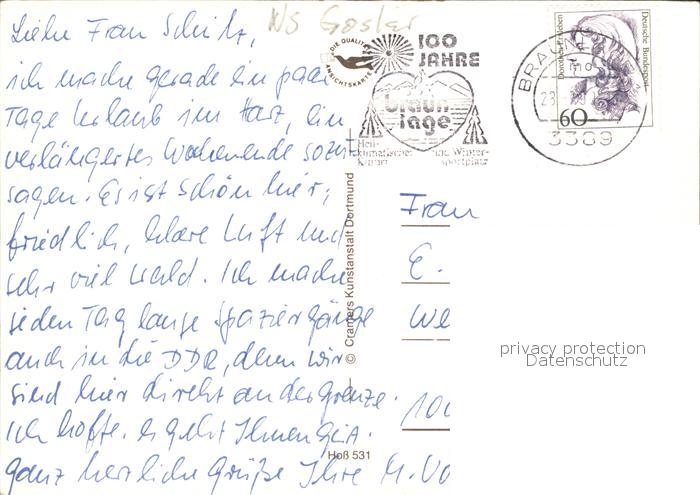 WS Goslar
Liebe Frau Schulz,
ich mache gerade ein paar
Tage Urlaub im Harz, ein
verlängertes Wochenende sozu-
sagen. Es ist schön hier,
friedlich, klare Luft und
sehr viel Wald. Ich mache
jeden Tag lange Spaziergänge
auch in die DDR, denn wir
sind hier direkt an der Grenze.
Ich hoffe, es geht Ihnen gut.
Ganz herzliche Grüße Ihre M. Vo
DIE QUALITÄTS
ANSICHTSKARTE
100
JAHRE
braun
lage
Heil-
klimatischer
Kurort
und Winter-
sportplatz
BRAUNL
23
3389
60
Deutsche Bundespost
Dorothea Erxleben
© Cramers Kunstanstalt Dortmund
Hoß 531
Frau
E.
We
100
privacy protection
Datenschutz